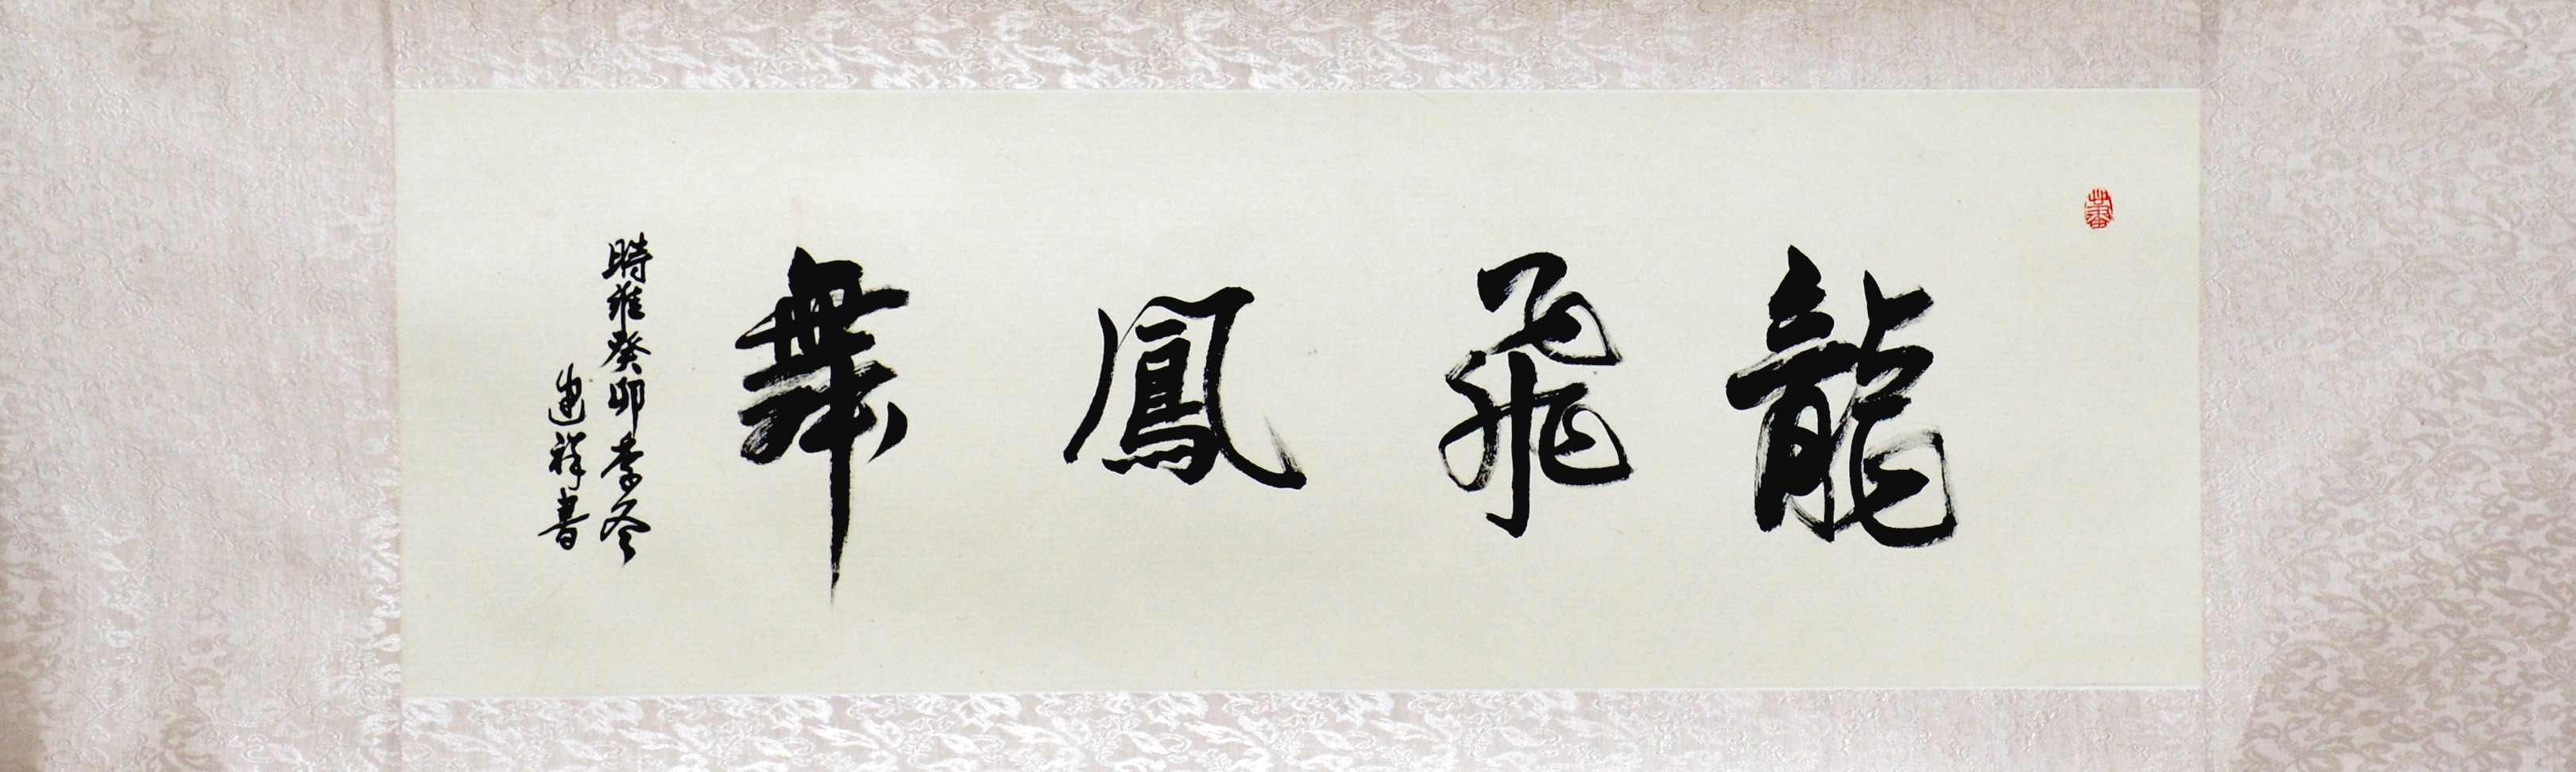 龍飛鳳舞
時維癸卯季冬
建祥書